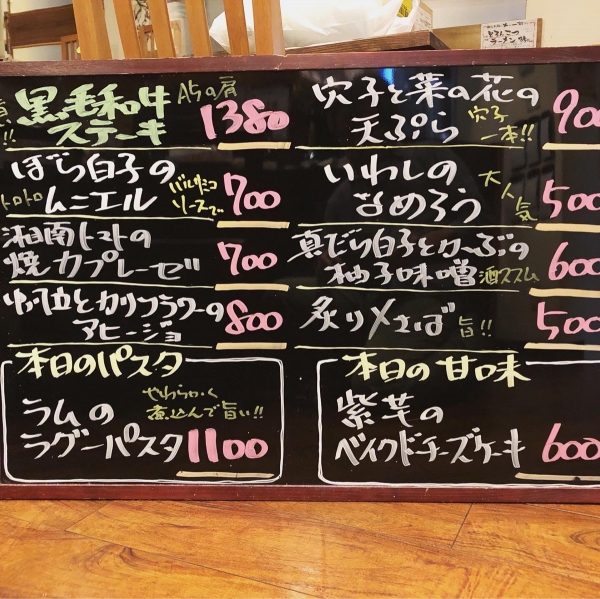 黒毛和牛
ステーキ
A5の肩
1380
!!
ぼら白子の
ムニエル
トロトロ
バルサミコ
ソースで
700
湘南トマトの
焼カプレーゼ
700
カリフラワーの
アヒージョ
800
本日のパスタ
ラムの
ラグーパスタ
やわらかく
煮込んで旨い!!
1100
とんこつ
ラーメン
穴子と菜の花の
天ぷら
穴子
一本!!
900
いわしの
なめろう
大人気
500
真だら白子とかぶの
柚子味噌
酒ススム
600
炙り〆さば
旨!!
500
本日の甘味
紫芋の
ベイクドチーズケーキ
600